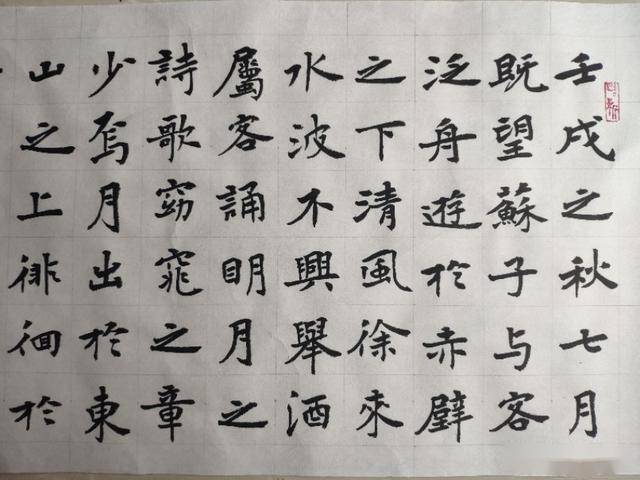 壬戌之秋七月
既望蘇子与客
泛舟遊於赤壁
之下清風徐來
水波不興舉酒
屬客誦明月之
詩歌窈窕之章
少焉月出於東
山之上徘徊於